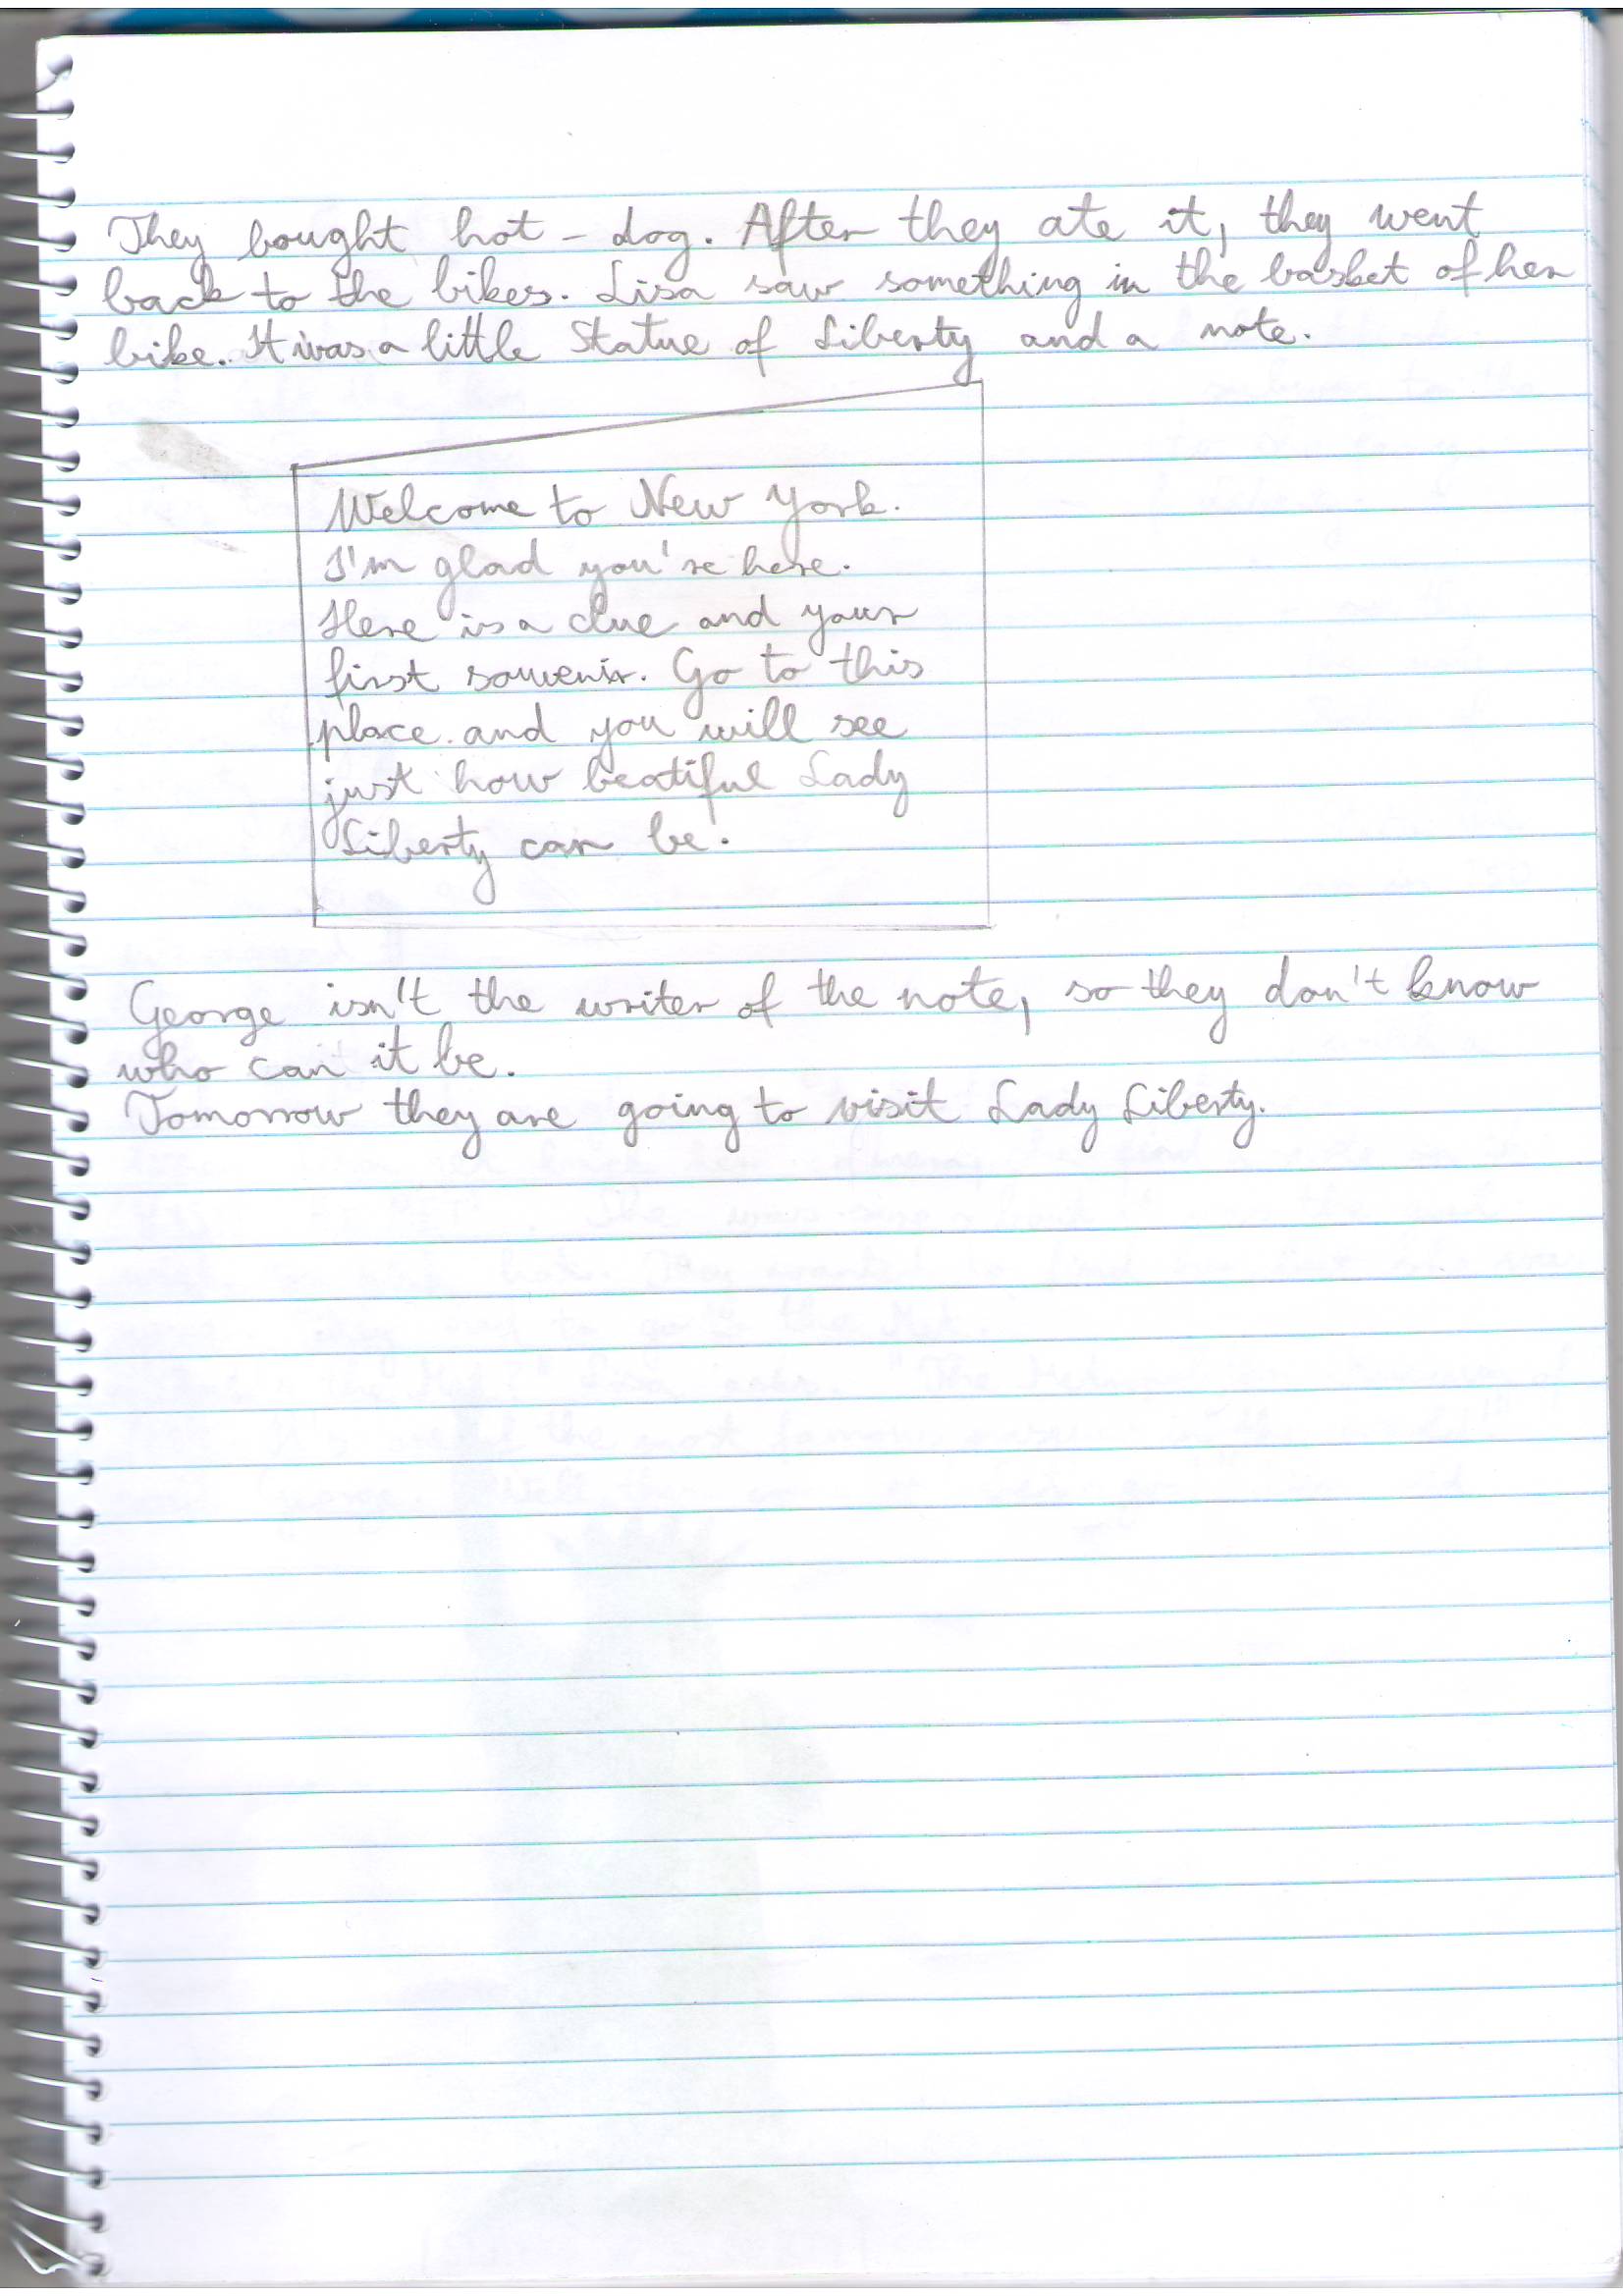 They bought hot - dog. After they ate it, they went
back to the bikes. Lisa saw something in the basket of her
bike. It was a little Statue of Liberty and a note.
Welcome to New York.
I'm glad you're here.
Here is a clue and your
first souvenir. Go to this
place and you will see
just how beatiful Lady
Liberty can be.
George isn't the writer of the note, so they don't know
who can it be.
Tomorrow they are going to visit Lady Liberty.